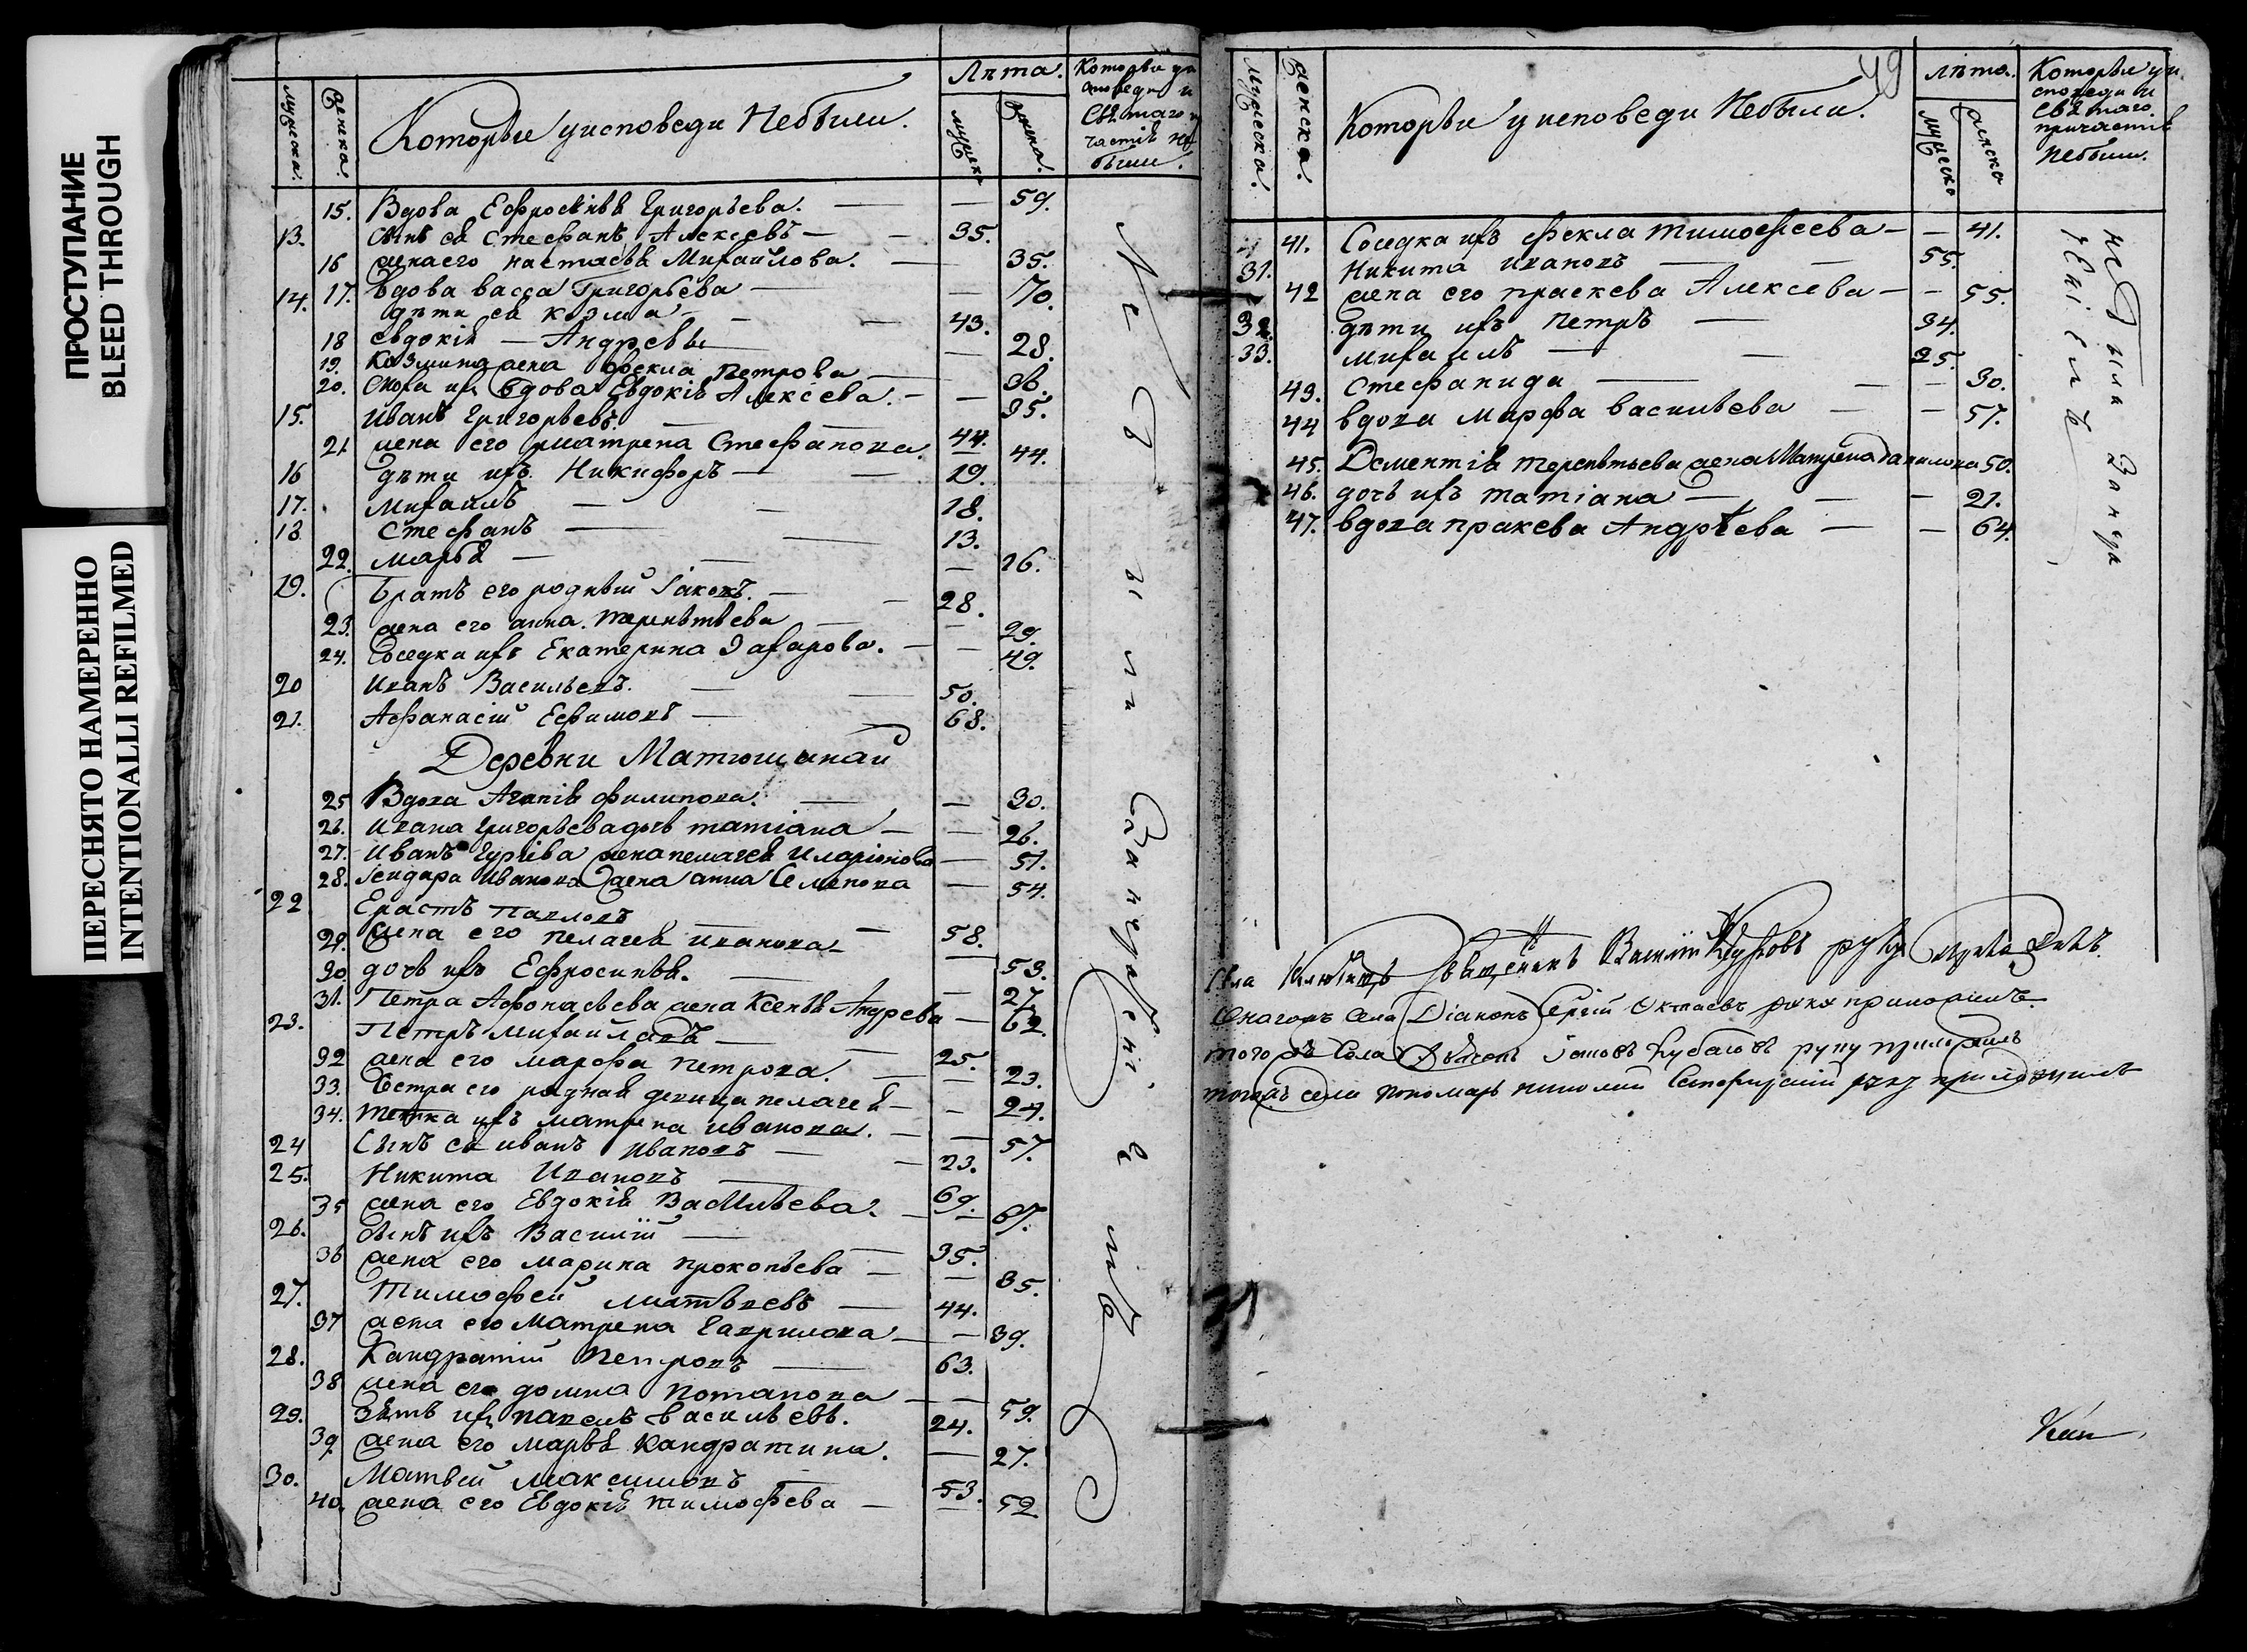 ПРОСТУПАНИЕ
BLEED THROUGH
ПЕРЕСНЯТО НАМЕРЕННО
INTENTIONALLI REFILMED
мужеска. женска. Которыи уисповеди Небыли. Лѣта. мужеска женска. Которыи уи споведи и Свѣтаго причастіѣ не были.
15. Вдова Ефросѣніѣ Григорьева. — — 59.
13. сынъ еѣ Стефанъ Алексеевъ — — 35.
16 жена его настасьѣ Михайлова. — 35.
14. 17. Вдова васса Григорьева — — 70.
дѣти еѣ козма — — 43.
18 евдокіѣ — Андреевы — 28.
19. Козмина жена Фекла Петрова — 36.
20. Сноха их вдова Евдокіѣ Алексѣева. — — 35.
15. Иванъ Григорьевъ. — — 44.
21 жена его матрена Стефанова. — 44.
16 дѣти ихъ Никифоръ — — 19.
17. Михаилъ — — 18.
18 Стефанъ — — 13.
22. марьѣ — — 16.
19. Братъ его родный Іаковъ. — — 28.
23. жена его анна терентьева — — 29.
24. Соседка ихъ Екатерина Захарова. — — 49.
20 Иванъ Васильевъ. — — 50.
21. Афанасій Ефимовъ — 68.
Деревни Матюшинай
25 Вдова Агапіѣ филипова. — — 30.
26. Ивана григорьева дочь татіана — — 26.
27. Иванъ Гурѣева жена пелагеѣ Иларіонова — 51.
28. Ісидора Иванова жена анна Семенова — 54.
22 Ерастъ павловъ — — 58.
29. жена его пелагеѣ иванова — — 53.
30 дочь ихъ Ефросиньѣ. — — 27.
31. Петра Афонасьева жена Ксеньѣ Андреева — 62.
23. Петръ михайлавъ — — 25.
32 жена его марфа петрова. — — 23.
33. Сестра его родная девица пелагеѣ — — 24.
34. тетка ихъ матрена иванова. — — 57.
24 Сынъ еѣ иванъ ивановъ — — 23.
25. Никита Ивановъ — 69.
35 жена его Евдокіѣ Васильева. — — 67.
26. сынъ ихъ Василій — — 35.
36 жена его марина прокопьева — — 35.
27. Тимофей матвѣевъ — 44.
37 жена его матрена Гаврилова — — 39.
28. Кандратій Петровъ — 63.
38 жена его домна Потапова — — 59.
29. Зѣть их павелъ васильевъ. 24.
39 жена его марьѣ кандратина. — 27.
30. Матвей максимовъ — 53.
40. жена его Евдокіѣ тимофеева — — 52
Не были Занерадѣніемъ
49
мужеска. женска. Которыи уисповеди Небыли. лѣта. мужеска женска Которыи уи споведи и свѣтаго причастіѣ небыли.
41. Соседка ихъ фекла тимофеева — — 41.
31. Никита ивановъ — — 55.
42 жена его праскева Алексеева — — 55.
32. дѣти ихъ петръ — 34.
33. михаилъ — — 25.
43. Стефанида — — — 30.
44 вдова марфа васильева — — 57.
45. Дементіѣ терентьева жена Матрена данилова 50.
46. дочь ихъ татіана — — — 21.
47. вдова пракева Андреева — — 64.
Не были Занерадѣніемъ
Села Священникъ Василій руку приложилъ.
Онагожъ села Діаконъ Сергій руку приложилъ.
тогожъ Села руку приложилъ
тогожъ села пономарь николай руку приложилъ